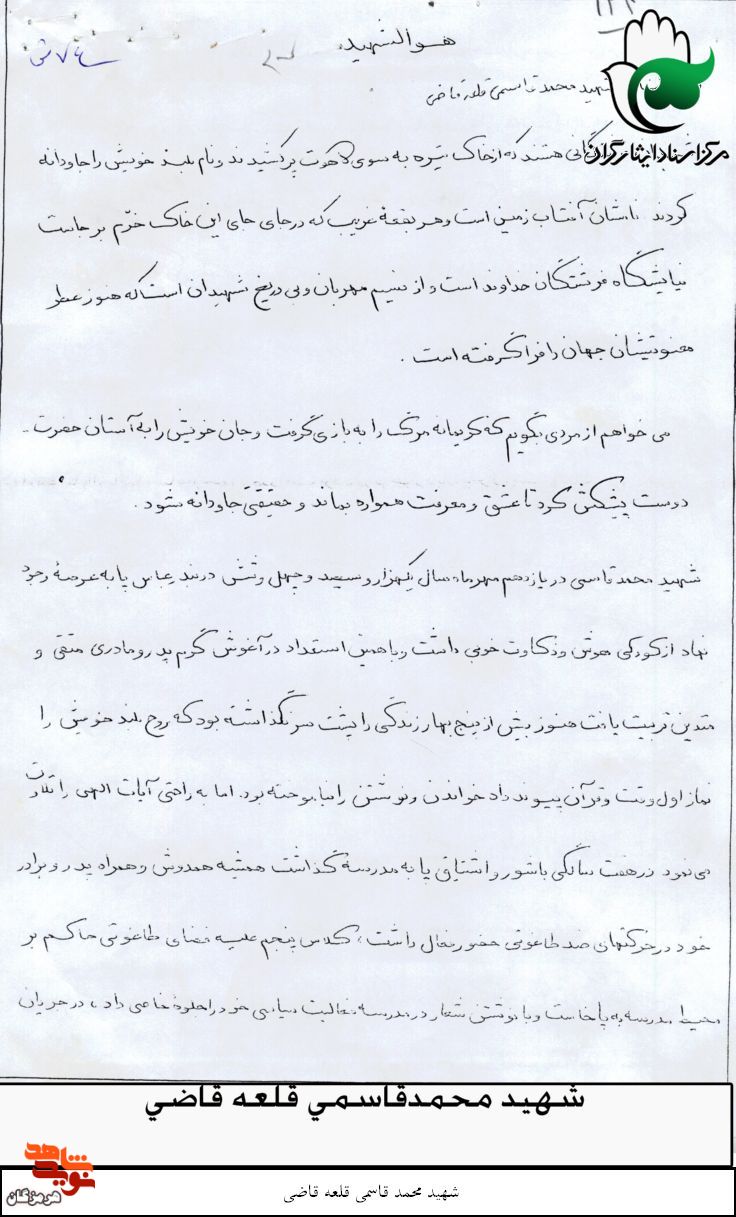 هوالشهید
۷۴
شهید محمد قاسمی قلعه قاضی
مرکز اسناد ایثارگران
هستند که از خاک تیره به سوی لاهوت پر کشیدند و نام بلند خویش را جاودانه
کردند نامشان آفتاب زمین است و هر بقعهٔ غریب که در جای جای این خاک خرّم برجاست
نیایشگاه فرشتگان خداوند است و از نسیم مهربان و بی دریغ شهیدان است که هنوز عطر
معنویتشان جهان را فرا گرفته است .
می خواهم از مردی بگویم که کریمانه مرگ را به بازی گرفت و جان خویش را به آستان حضرت
دوست پیشکش کرد تا عشق و معرفت همواره بماند و حقیقتی جاودانه شود .
شهید محمد قاسمی در یازدهم مهر ماه سال یکهزار و سیصد و چهل و شش در بندرعباس پا به عرصهٔ وجود
نهاد از کودکی هوش و ذکاوت خوبی داشت و با همین استعداد در آغوش گرم پدر و مادری متقی و
متدین تربیت یافت هنوز بیش از پنج بهار زندگی را پشت سر نگذاشته بود که روح بلند خویش را
نماز اول وقت و قرآن پیوند داد خواندن و نوشتن را نیاموخته بود. اما به راحتی آیات الهی را تلاوت
می نمود در هفت سالگی با شور و اشتیاق پا به مدرسه گذاشت همیشه همدوش و همراه پدر و برادر
خود در حرکتهای ضد طاغوتی حضور فعال داشت، کلاس پنجم علیه فضای طاغوتی حاکم بر
محیط مدرسه به پا خاست و با نوشتن شعار در مدرسه فعالیت سیاسی خود را جلوهٔ خاصی داد، در جریان
شهید محمدقاسمي قلعه قاضي
نوید شاهد
هرمزگان
شهید محمد قاسمی قلعه قاضی